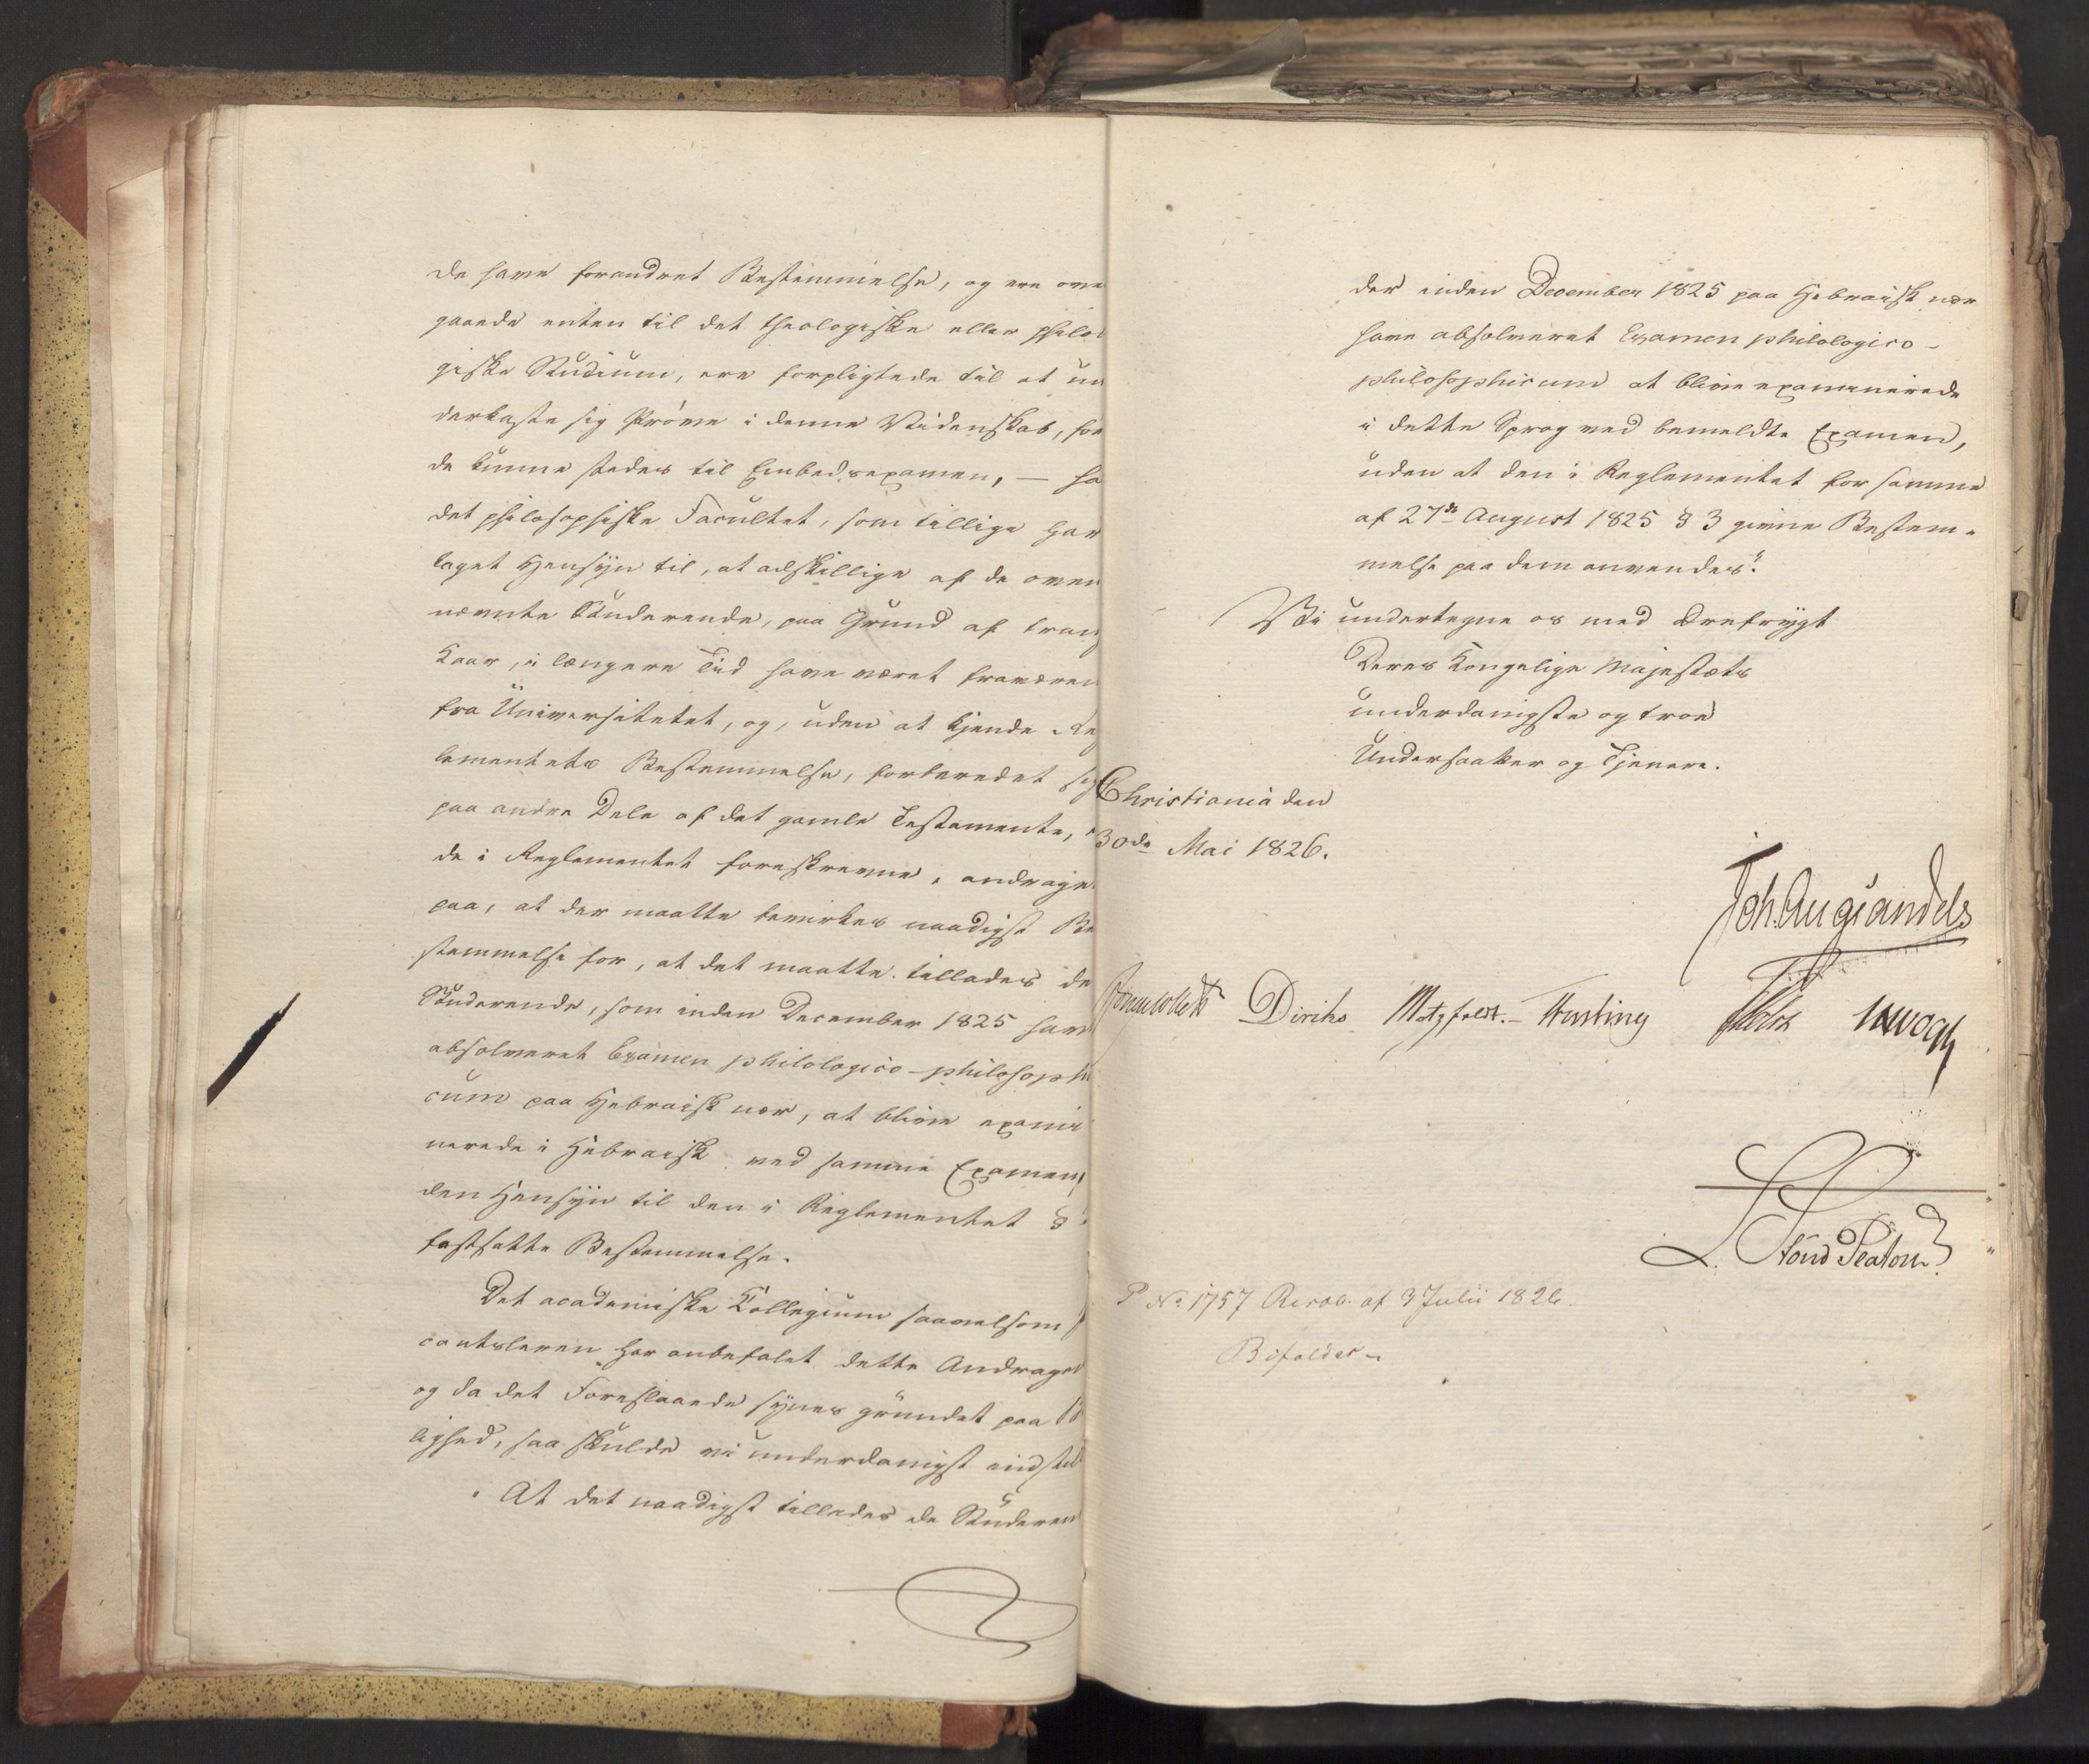 de have forandret Bestemmelse, og ere over
gaaede enten til det theologiske eller philolo
giske Studium, ere forpligtede til at un
derkaste sig Prøve i denne Videnskab, før
de kunne stedes til Embedsexamen, — ha
det philosophiske Facultet, som tillige har
taget Hensyn til, at adskillige af de oven
nævnte Studerende, paa Grund af trang
Kaar, i længere Tid have været fraværen
fra Universitetet, og, uden at kjende Reg
lementets Bestemmelse, forberedet sig
paa andre Dele af det gamle Testamente, e
de i Reglementet foreskrevne, andraget
paa, at der maatte bevirkes naadigst Be
stemmelse for, at det maatte tillades de
Studerende, som inden December 1825 have
absolveret Examen philologico-philosophi
cum paa Hebraisk nær, at blive exami
nerede i Hebraisk ved samme Examen,
den Hensyn til den i Reglementet §
fastsatte Bestemmelse.
Det academiske Collegium saavelsom P
cantsleren har anbefalet dette Andragende
og da det Foreslaaede synes grundet paa Bil
lighed, saa skulde vi underdanigst indstille
At det naadigst tillades de Studeren
der inden December 1825 paa Hebraisk nær
have absolveret Examen philologico-
philosophicum at blive examinerede
i dette Sprog ved bemeldte Examen,
uden at den i Reglementet for samme
af 27de August 1825 § 3 givne Bestem-
melse paa dem anvendes."
Vi undertegne os med Ærefrygt
Deres Kongelige Majestæts
underdanigste og troe
Undersaatter og Tjenere.
Christiania den
30de Mai 1826.
Joh. Aug Sandels
Diriks Motzfeldt.- Holst
No 1757 Resol. af 3 Julii 1826.
Bifaldes-